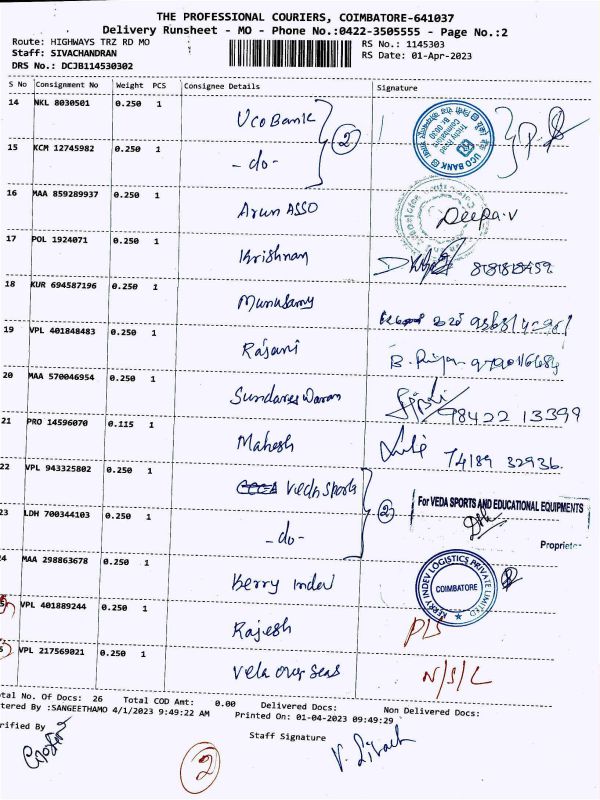 THE PROFESSIONAL COURIERS, COIMBATORE-641037
Delivery Runsheet - MO - Phone No.:0422-3505555 - Page No.:2
Route: HIGHWAYS TRZ RD MO RS No.: 1145303
Staff: SIVACHANDRAN RS Date: 01-Apr-2023
DRS No.: DCJB114530302
S No Consignment No Weight PCS Consignee Details Signature
14 NKL 8030501 0.250 1 Uco Bank (2) UCO BANK
15 KCM 12745982 0.250 1 -do-
16 MAA 859289937 0.250 1 Arun ASSO Deepa.v
17 POL 1924071 0.250 1 Krishnan
18 KUR 694587196 0.250 1 Munusamy
19 VPL 401848483 0.250 1 Rajani
20 MAA 570046954 0.250 1 Sundareswaran 98422 13399
21 PRO 14596070 0.115 1 Mahesh 74189 32936
22 VPL 943325802 0.250 1 Veda Sports (2) For VEDA SPORTS AND EDUCATIONAL EQUIPMENTS
23 LDH 700344103 0.250 1 -do- Proprietor
24 MAA 298863678 0.250 1 Kerry Indev KERRY INDEV LOGISTICS PRIVATE LIMITED COIMBATORE
VPL 401889244 0.250 1 Rajesh
6 VPL 217569021 0.250 1 Vela Overseas N/S/L
otal No. Of Docs: 26 Total COD Amt: 0.00 Delivered Docs: Non Delivered Docs:
tered By :SANGEETHAMO 4/1/2023 9:49:22 AM Printed On: 01-04-2023 09:49:29
rified By Staff Signature
2 V. Sivach